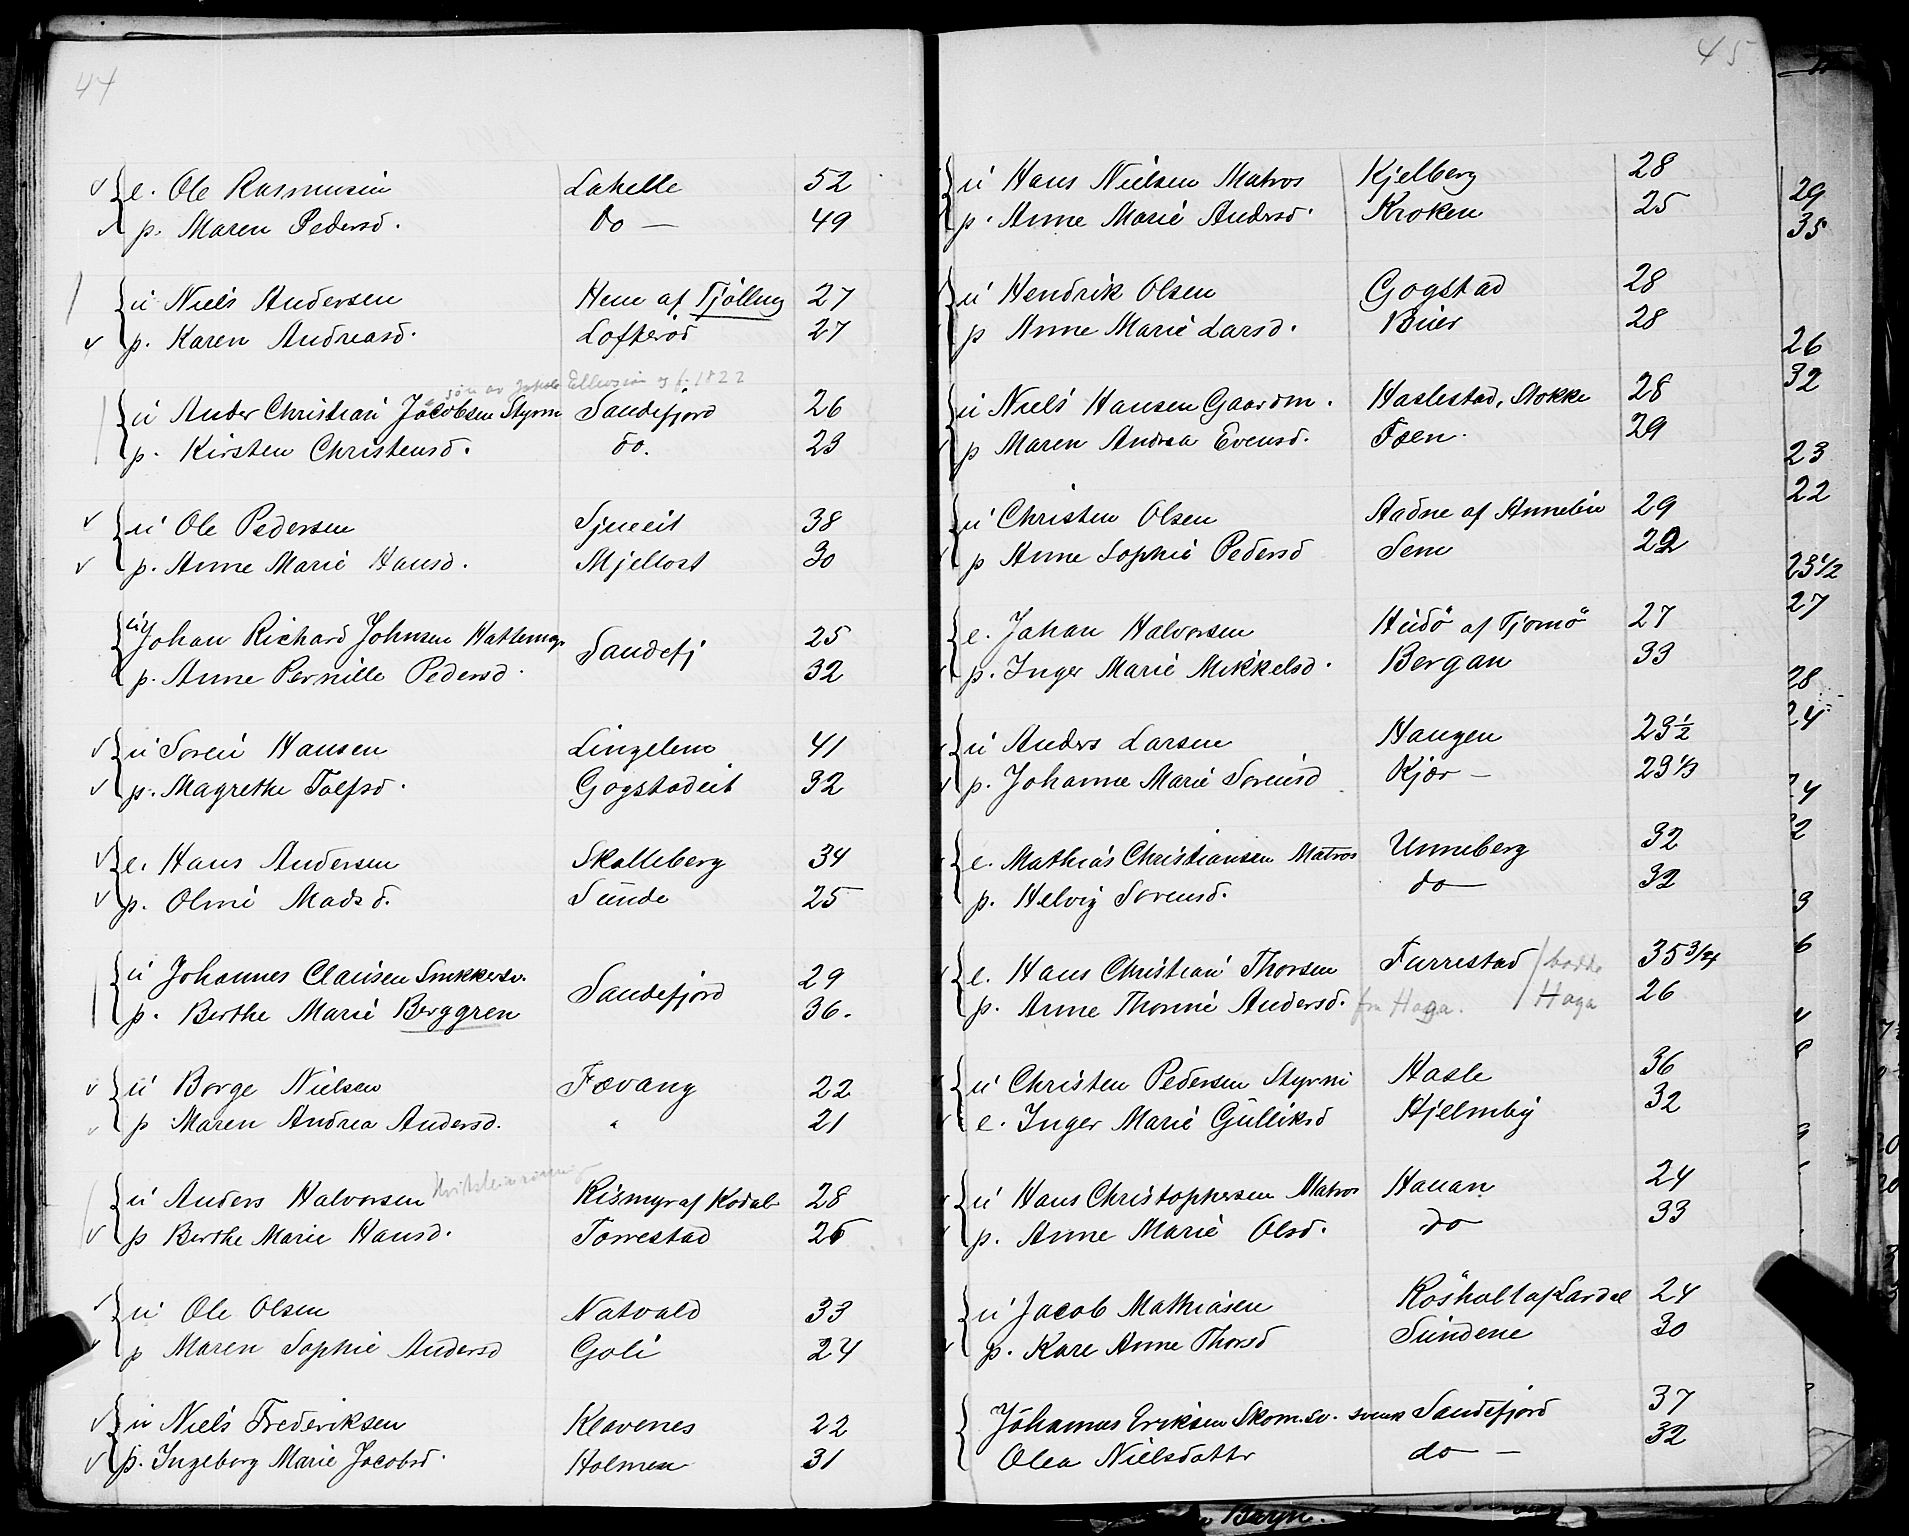 44
e. Ole Rasmusen Lahelle 52
p. Maren Pedersd. Do — 49
u Niels Andersen Hem af Tjølling 27
p. Karen Andreasd. Lofterød 27
søn av Jakob Ellevsen og f. 1822
u Ander Christian Jacobsen Styrm Sandefjord 26
p. Kirsten Christensd. do. 23
u Ole Pedersen Sjueeit 38
p. Anne Marie Hansd. Mjellost 30
u Johan Richard Johnsen Hattemag. 25
Sandefj
p. Anne Pernille Pedersd. 32
u Soren Hansen Lingelem 41
p. Magrethe Tolfsd. Gogstadeit 32
e. Hans Andersen Skalleberg 34
p. Olene Madsd. Sunde 25
u Johannes Clausen Snekkersv. 29
Sandefjord
p. Berthe Marie Berggren 36.
u Borge Nielsen Fævang 22
p Maren Andrea Andersd. " 21
u Anders Halvorsen Rismyr af Kodal 28
p Berthe Marie Hansd. Torrestad 26
u Ole Olsen Natvald 33
p Maren Sophie Andersd Goli 24
u Niels Frederiksen Klavenes 22
p. Ingeborg Marie Jacobsd. Holmen 31
45
u Hans Nielsen Matros Kjelberg 28
p. Anne Marie Andersd. Kroken 25
u Hendrik Olsen Gogstad 28
p Anne Marie Larsd. Buer 28
u Niels Hansen Gaardm. Haslestad, Stokke 28
p Maren Andrea Evensd. Foen. 29
u Christen Olsen Aadne af Annebu 29
p Anne Sophie Pedersd Sem 22
e. Johan Halvorsen Hudö af Tjomö 27
p. Inger Marie Mikkelsd. Bergan 33
u Anders Larsen Haugen 23½
p. Johanne Marie Sorensd Kjær — 23⅓
e. Mathias Christiansen Matros Unneberg 32
p. Helvig Sorensd. do — 32
e. Hans Christian Thorsen Furrestad / badde 35 3/4
p. Anne Thorine Andersd. fra Haga. / Haga 26
u Christen Pedersen Styrm Hasle 36
e. Inger Marie Gulliksd Hjelmby 32
u Hans Christophersen Matros Hauan 24
p. Anne Marie Olsd. do 33
u Jacob Mathiasen Rösholt af Lardal 24
p. Kare Anne Thorsd Sundene 30
Johannes Eriksen Skom.sv. svensk Sandefjord 37
Olea Nielsdatter do — 32
29
35
26
32
23
22
23½
27
28
24
24